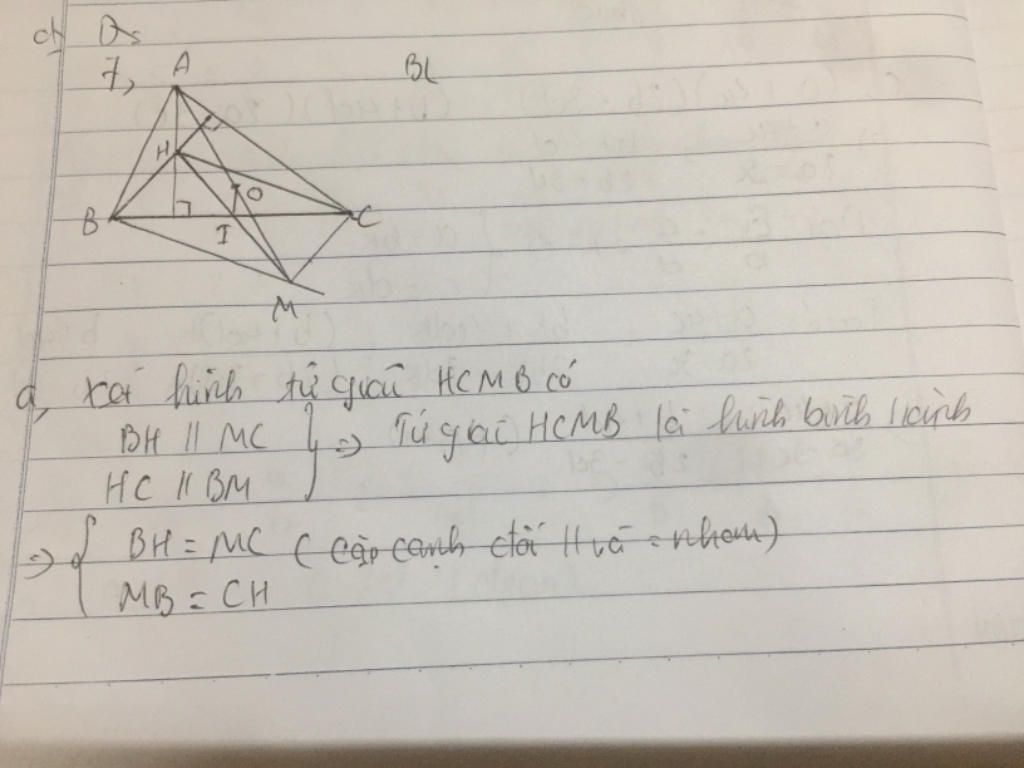 7,
A
BL
H
O
B
C
I
M
a, xét hình tứ giác HCMB có
BH // MC
HC // BM
} => Tứ giác HCMB là hình bình hành
=> { BH = MC ( cặp cạnh đối // và = nhau)
MB = CH